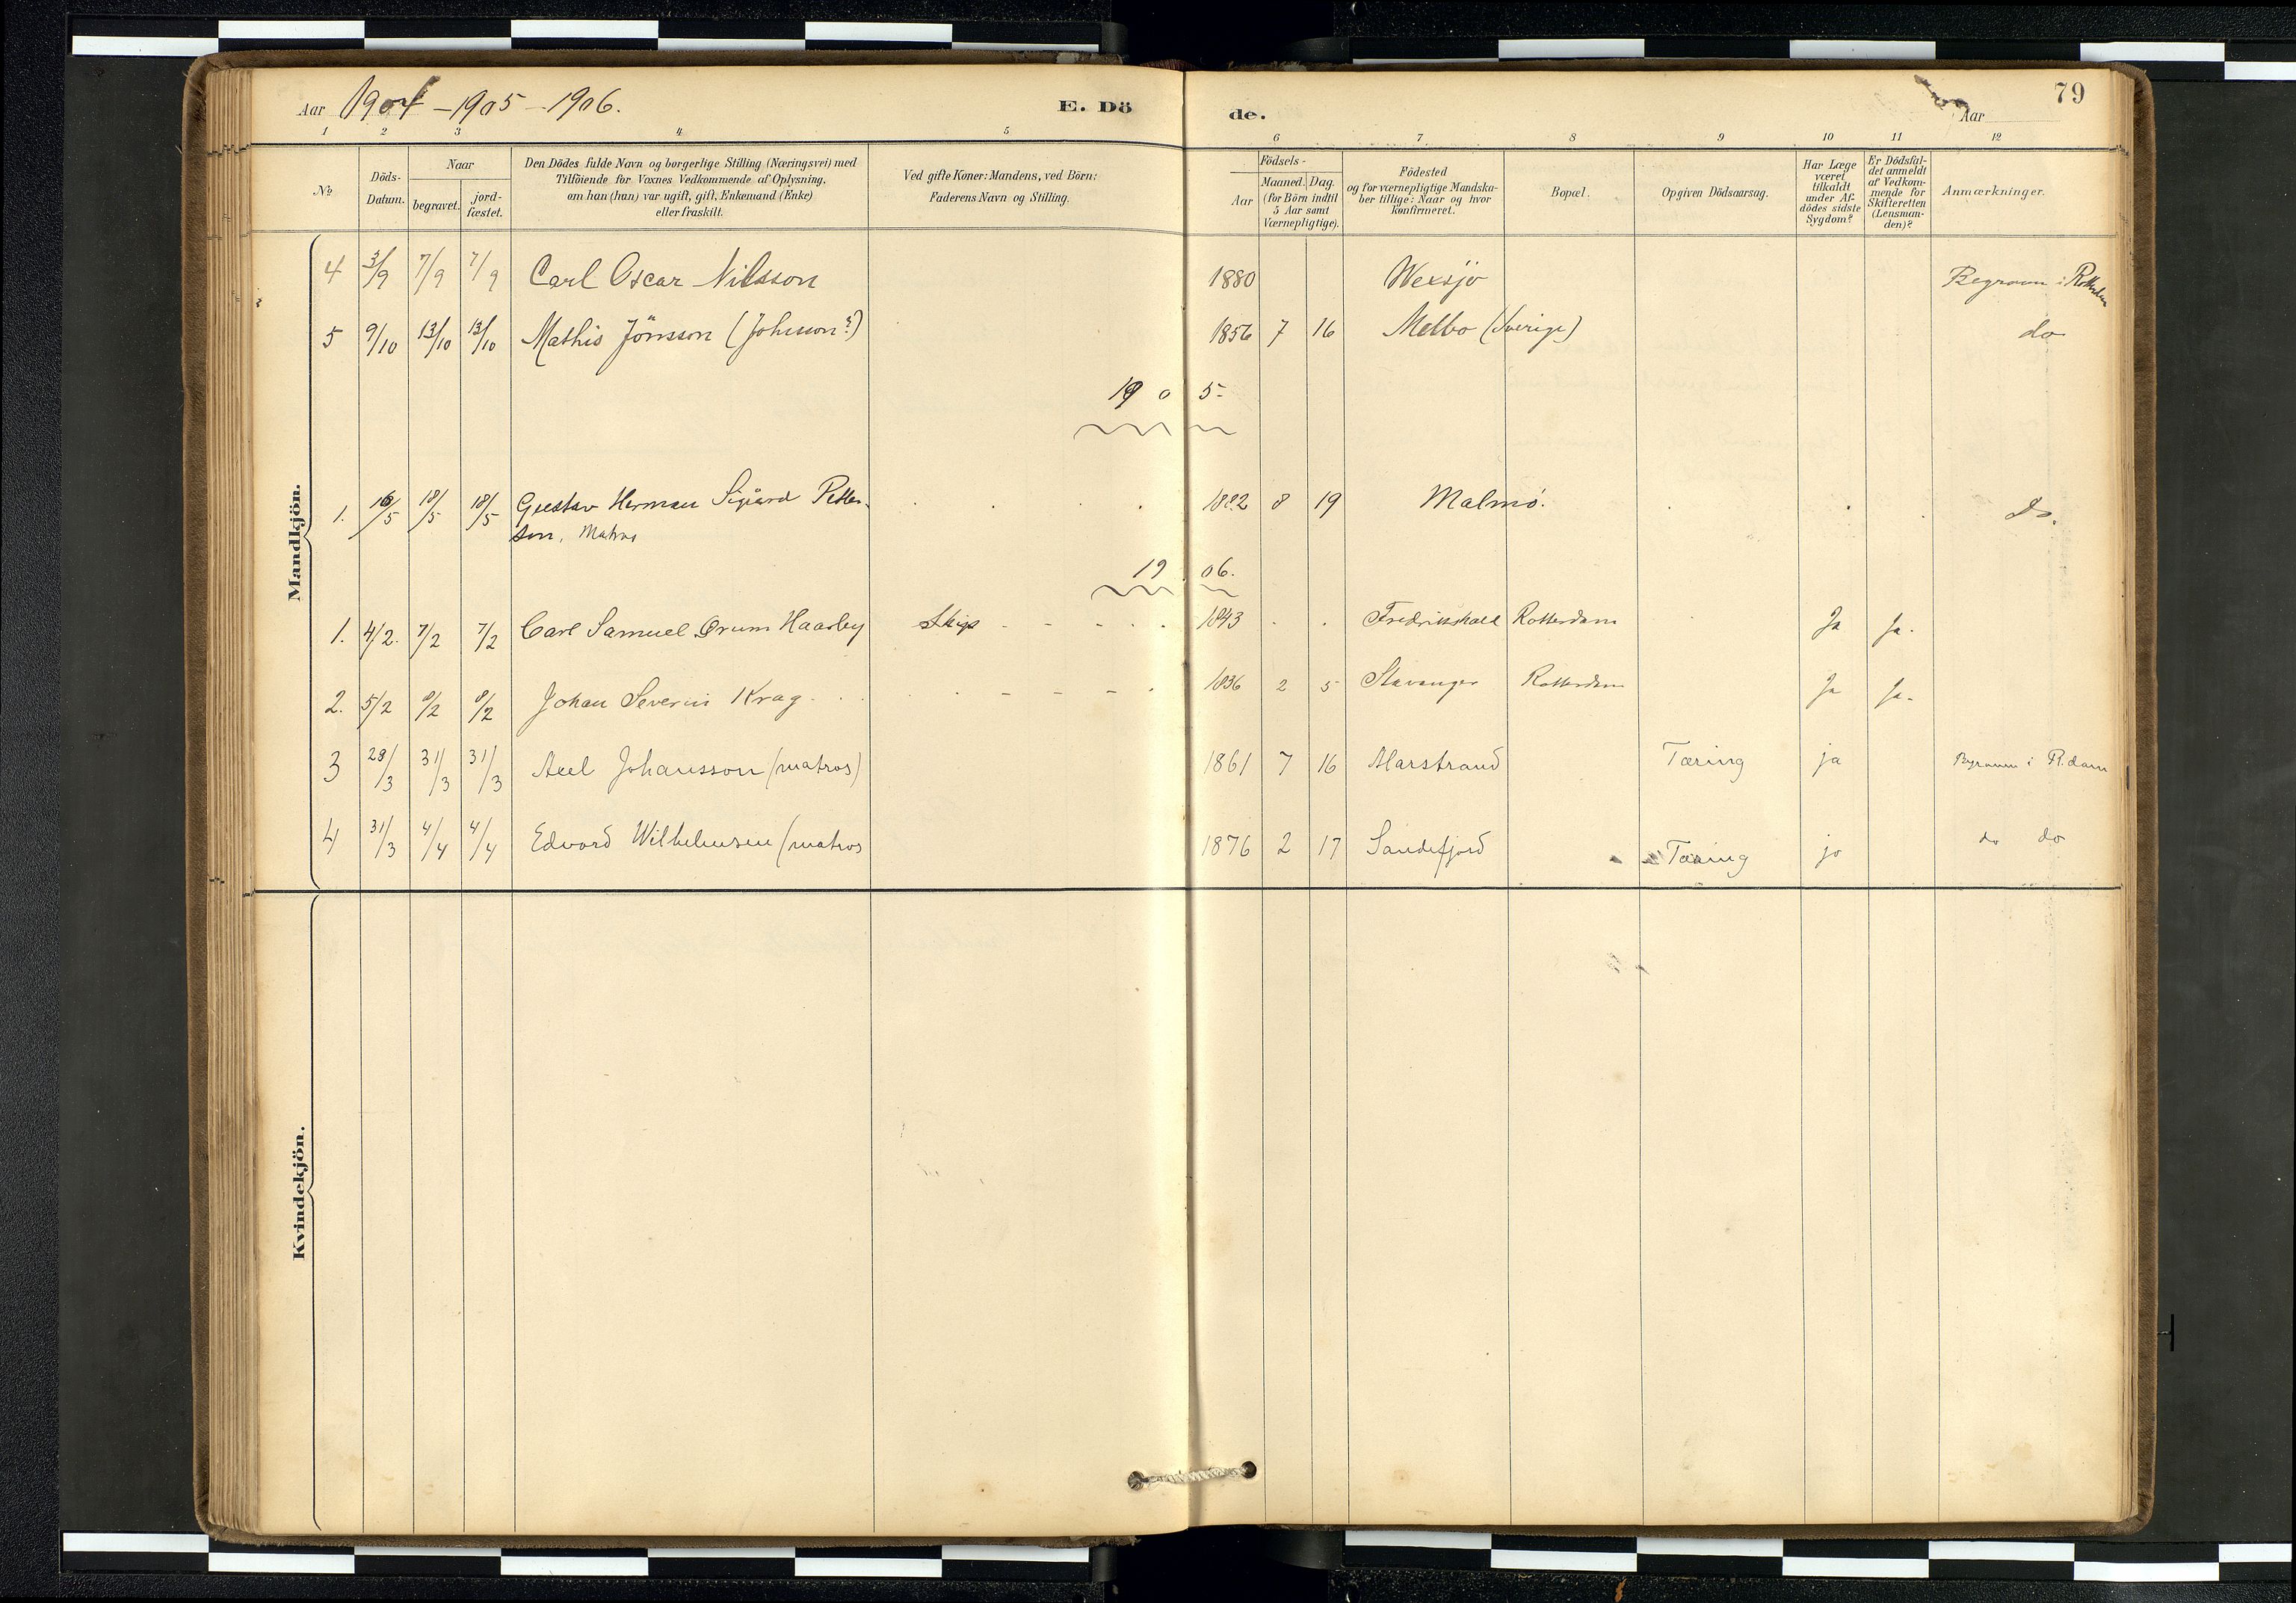 Aar 1904 - 1905 - 1906. E. Dö de. Aar 79
1 2 3 4 5 6 7 8 9 10 11 12
№ Döds-Datum. Naar begravet. jord-fæstet. Den Dödes fulde Navn og borgerlige Stilling (Næringsvei) med Tilföiende for Voxnes Vedkommende af Oplysning, om han (hun) var ugift, gift, Enkemand (Enke) eller fraskilt. Ved gifte Koner: Mandens, ved Börn: Faderens Navn og Stilling. Födsels- Aar Maaned. Dag. (for Börn indtil 5 Aar samt Værnepligtige). Födested og for værnepligtige Mandskaber tillige: Naar og hvor konfirmeret. Bopæl. Opgiven Dödsaarsag. Har Læge været tilkaldt under Afdödes sidste Sygdom? Er Dödsfaldet anmeldt af Vedkommende for Skifteretten (Lensmanden)? Anmærkninger.
Mandkjön.
4 3/9 7/9 7/9 Carl Oscar Nilsson 1880 Wexsjö Begraven i Rotterdam
5 9/10 13/10 13/10 Mathis Jönsson (Johnson?) 1856 7 16 Melbo (Sverige) do
1905-
1. 16/5 18/5 18/5 Gustav Herman Sigvard Petter- 1882 8 19 Malmö. Do.
son, Matros
1906.
1. 4/2. 7/2 7/2 Carl Samuel Ørum Haasley 1843 Fredrikshald Rotterdam Ja Ja.
2. 5/2 8/2 8/2 Johan Severin Krag 1836 2 5 Stavanger Rotterdam Ja Ja.
3 28/3 31/3 31/3 Axel Johansson (matros) 1861 7 16 Marstrand Tæring ja Begraven i R.dam
4 31/3 4/4 4/4 Edvard Wilhelmsen (matros 1876 2 17 Sandefjord Tæring ja do do
Kvindekjön.